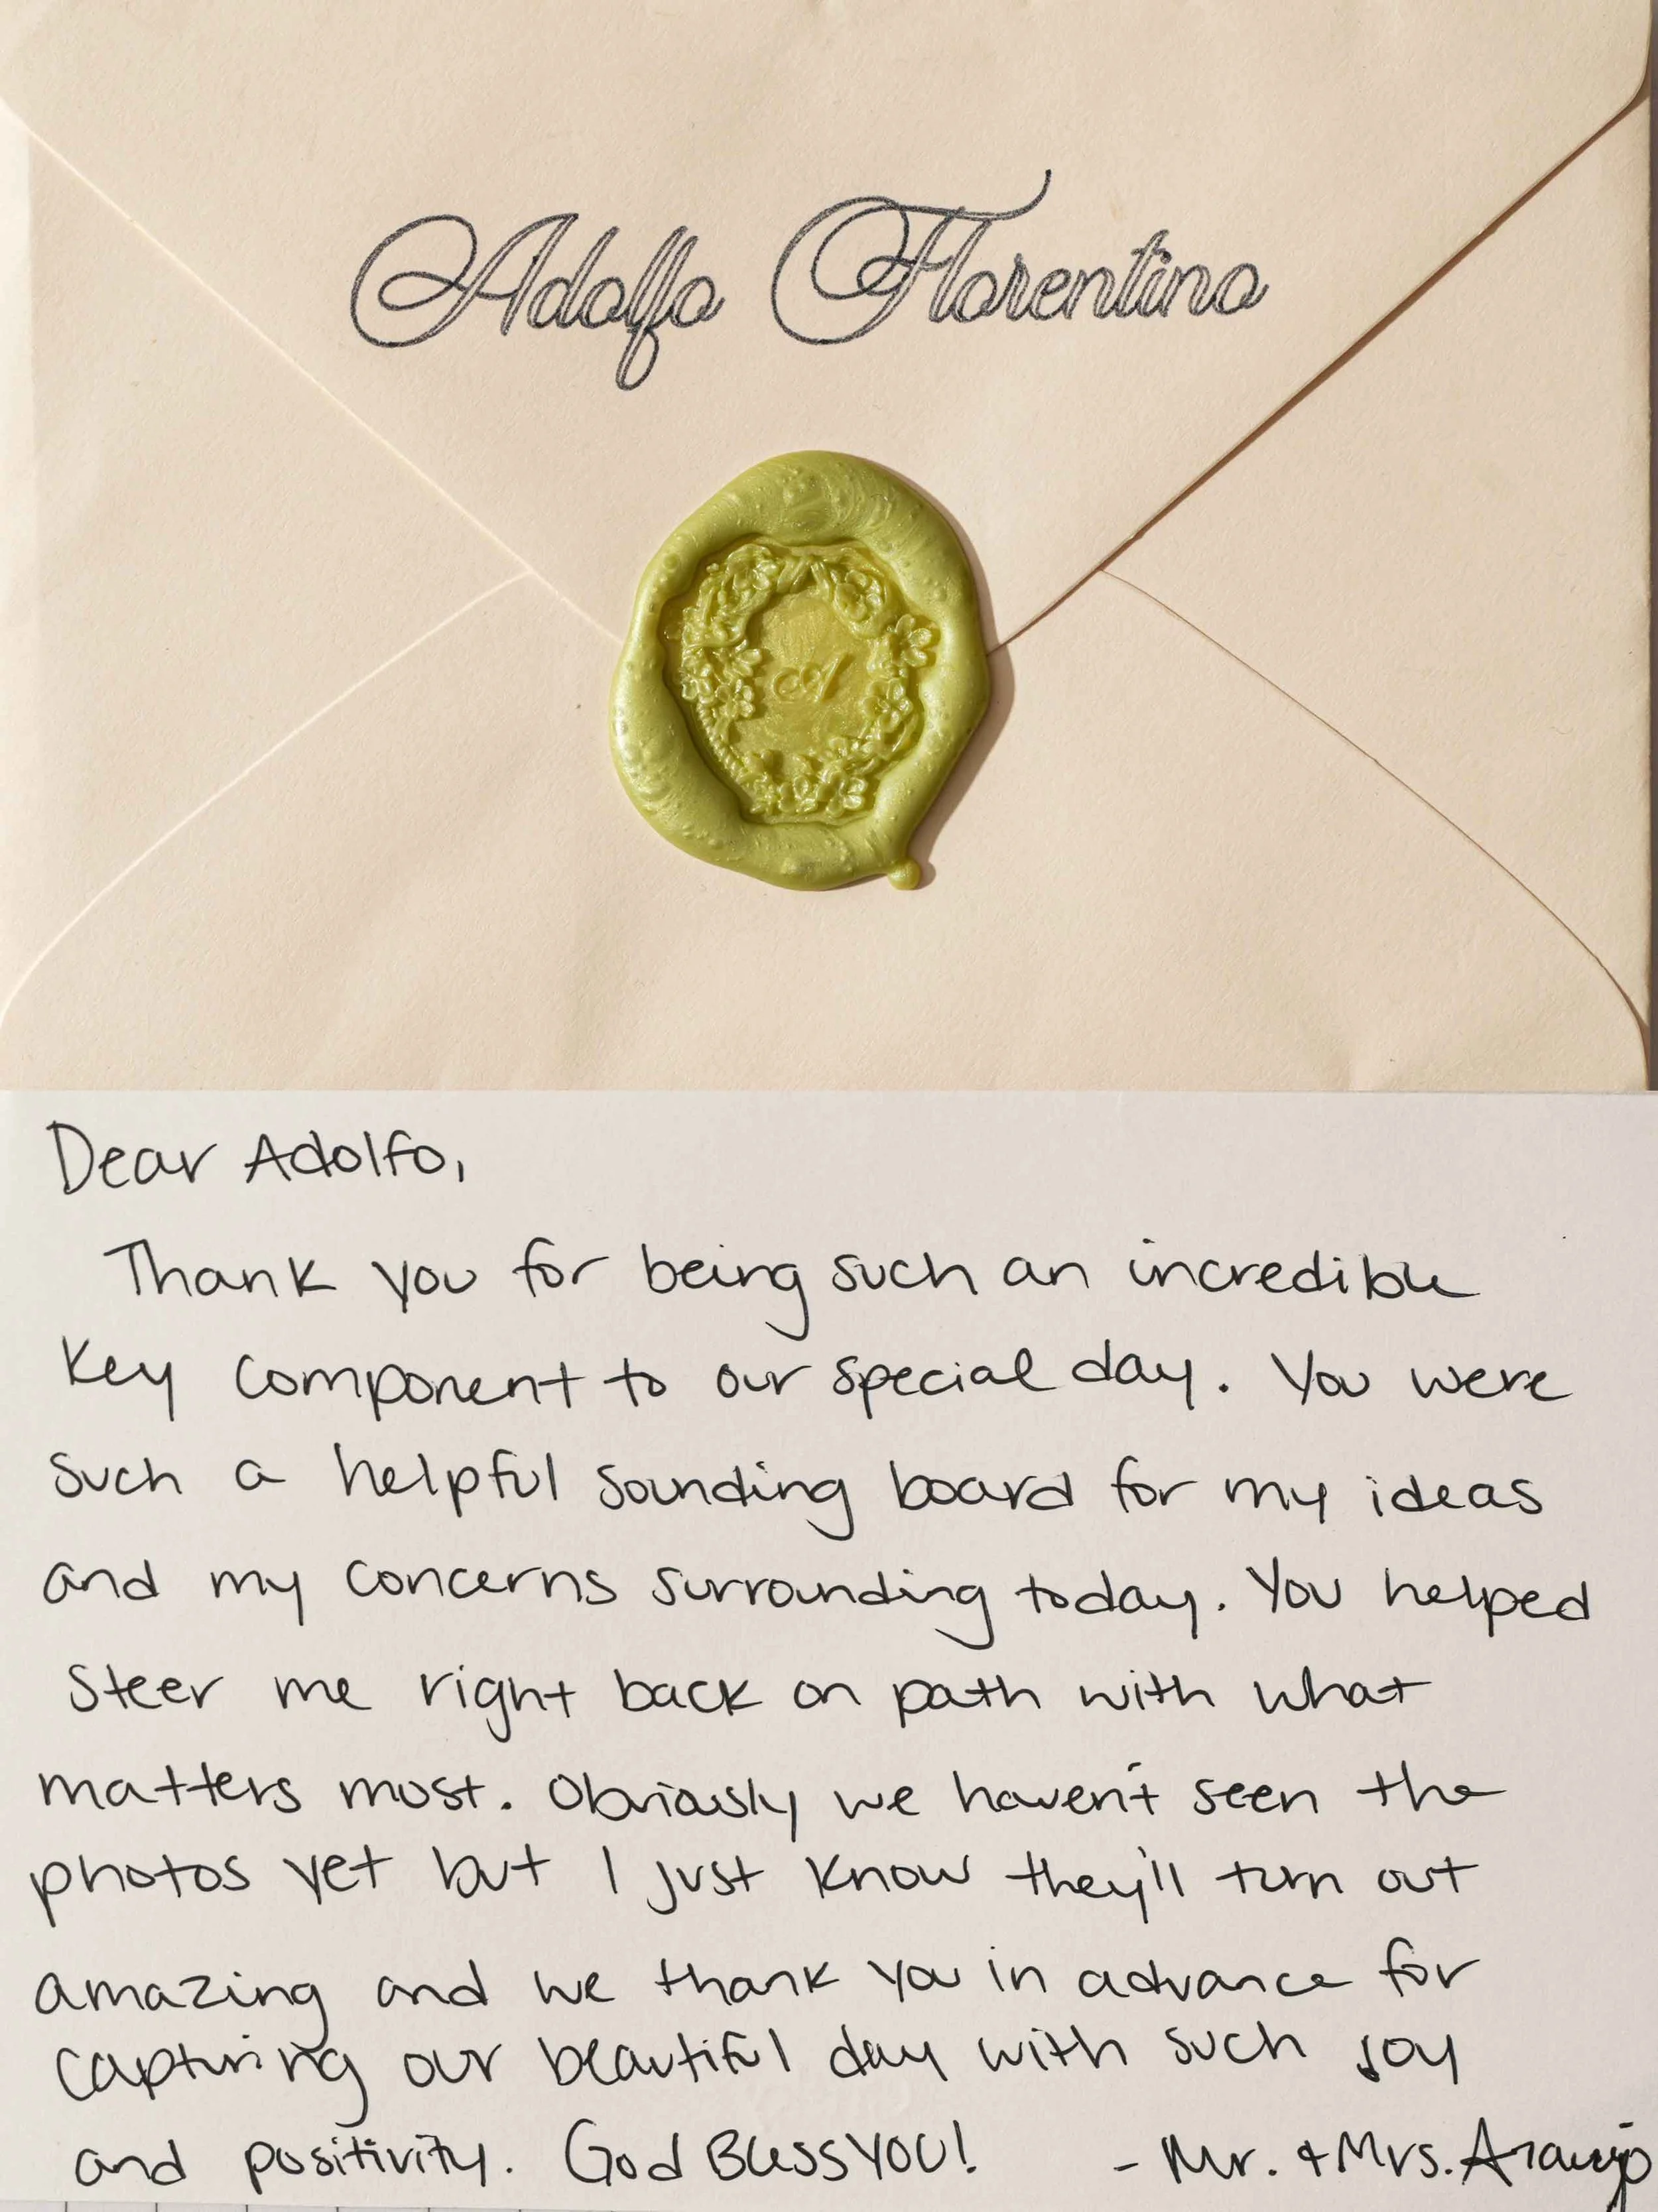 Adolfo Florentino
A
Dear Adolfo,
Thank you for being such an incredible
key component to our special day. You were
such a helpful sounding board for my ideas
and my concerns surrounding today. You helped
steer me right back on path with what
matters most. Obviously we haven't seen the
photos yet but I just know they'll turn out
amazing and we thank you in advance for
capturing our beautiful day with such joy
and positivity. God Bless YOU! - Mr. + Mrs. Araujo